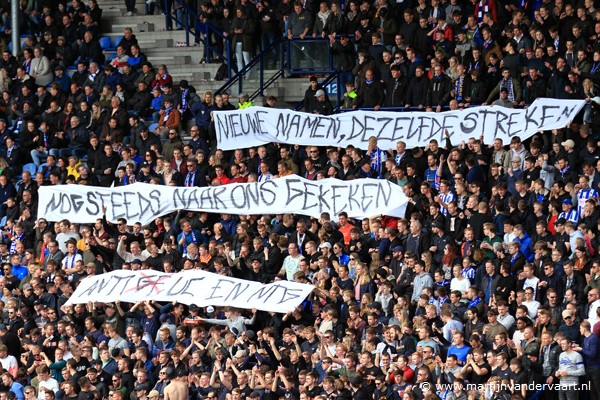 NIEUWE NAMEN, DEZELFDE STREKEN
NOG STEEDS NAAR ONS GEKEKEN
© www.martijnvandervaart.nl